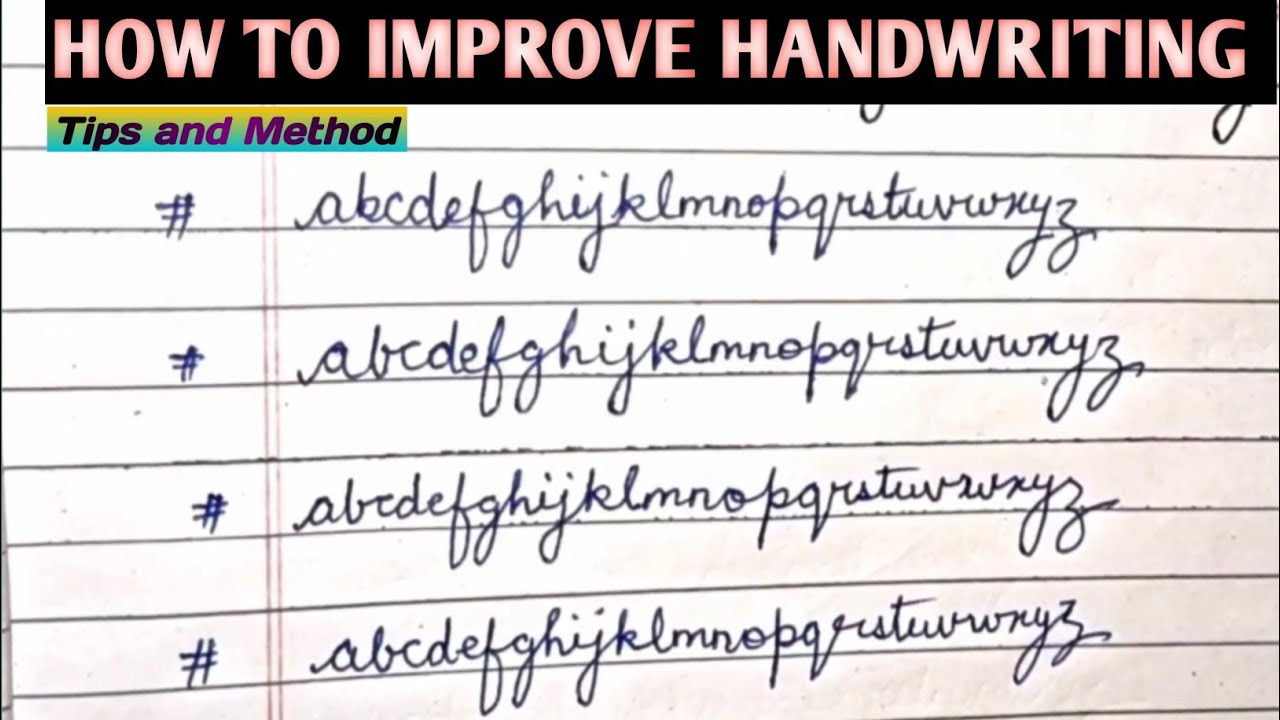 HOW TO IMPROVE HANDWRITING
Tips and Method
# abcdefghijklmnopqrstuvwxyz
# abcdefghijklmnopqrstuvwxyz
# abcdefghijklmnopqrstuvwxyz
# abcdefghijklmnopqrstuvwxyz